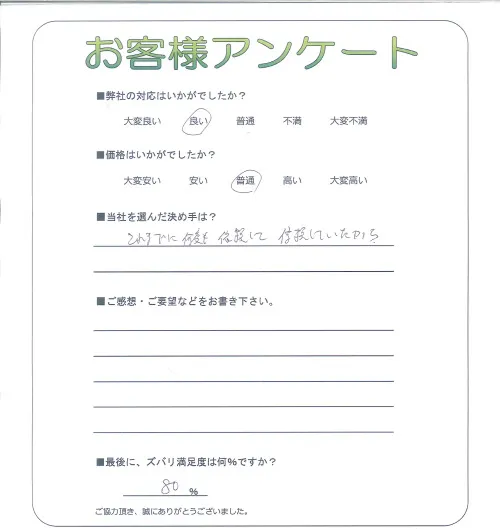 お客様アンケート
■弊社の対応はいかがでしたか?
大変良い 良い 普通 不満 大変不満
■価格はいかがでしたか?
大変安い 安い 普通 高い 大変高い
■当社を選んだ決め手は?
これまでに何度も して していたから
■ご感想・ご要望などをお書き下さい。
■最後に、ズバリ満足度は何%ですか?
80 %
ご協力頂き、誠にありがとうございました。